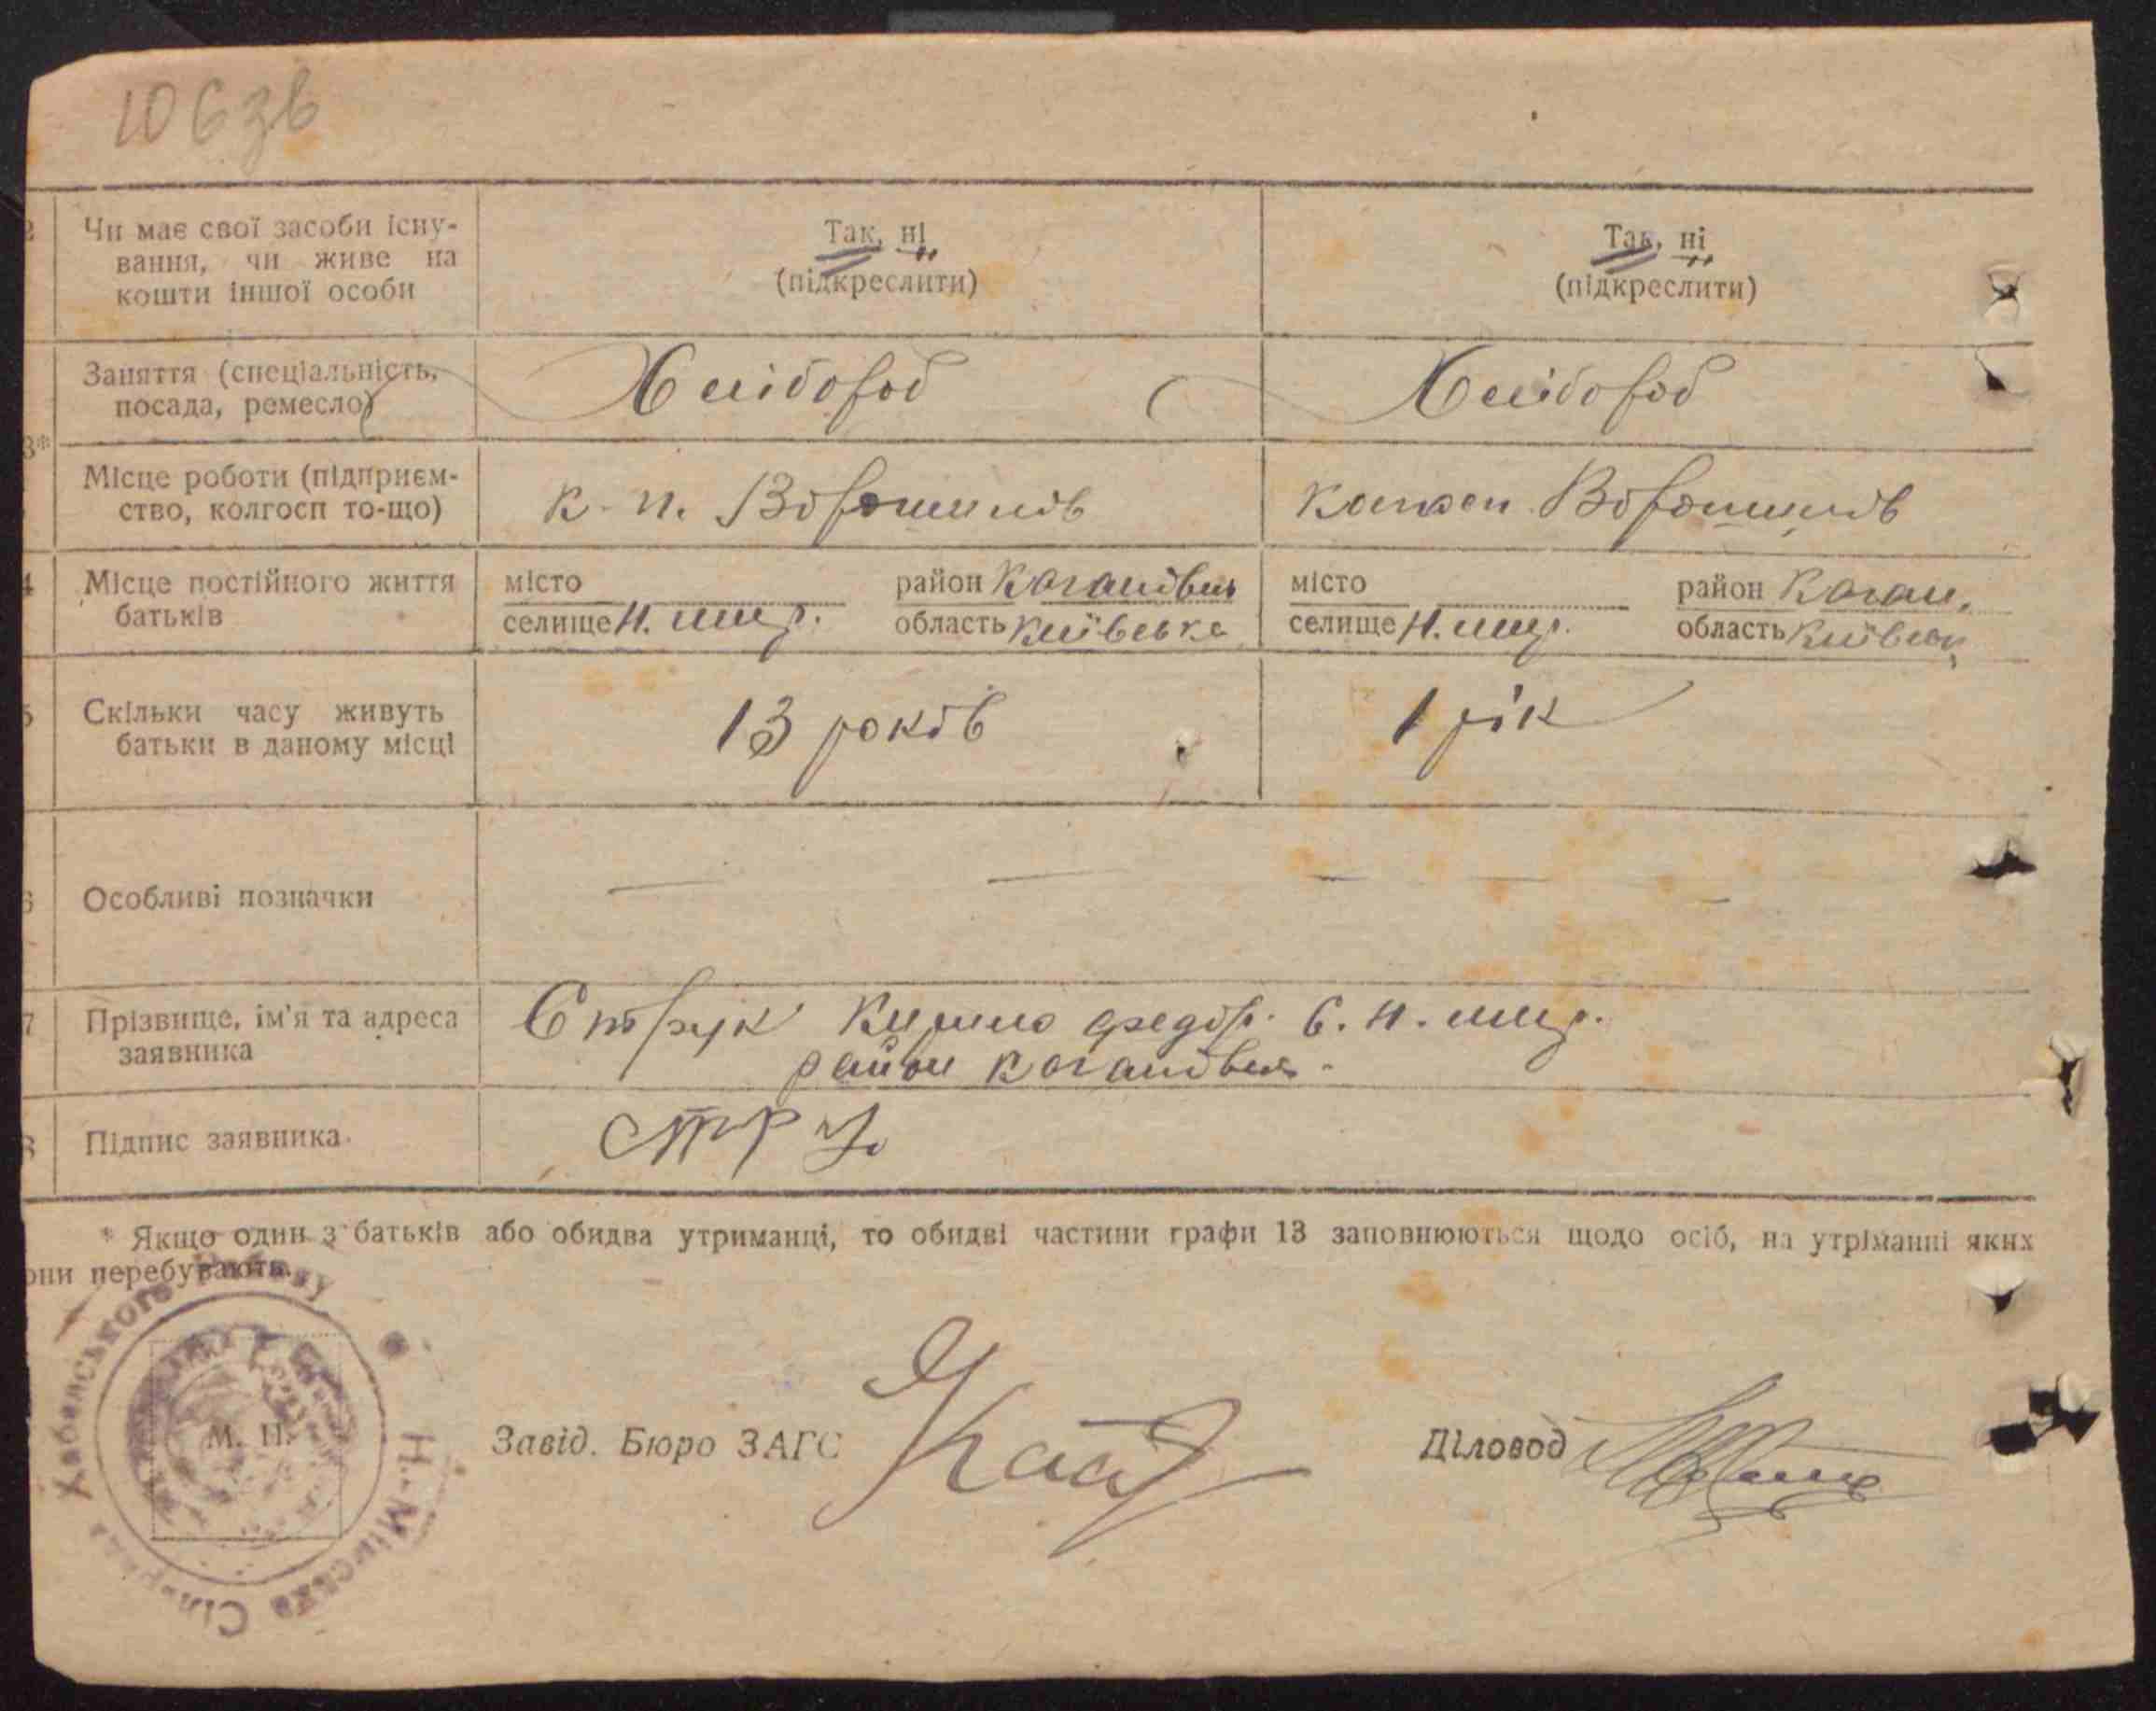 106зв
2 Чи має свої засоби існу-
вання, чи живе на
кошти іншої особи
Так, ні
(підкреслити)
Так, ні
(підкреслити)
Заняття (спеціальність,
посада, ремесло)
Хлібороб
Хлібороб
3*
Місце роботи (підприєм-
ство, колгосп то-що)
К. п. Ворошилов
Ворошилов
4 Місце постійного життя
батьків
місто
селище Н. мир.
район Каганович
область Київська
місто
селище Н. мир.
район Каган.
область Київськ
5 Скільки часу живуть
батьки в даному місці
13 років
1 рік
6 Особливі позначки
— — — —
7 Прізвище, ім'я та адреса
заявника
Струк федор. с. Н. мир.
район Каганович.
8 Підпис заявника.
* Якщо один з батьків або обидва утриманці, то обидві частини графи 13 заповнюються щодо осіб, на утріманні яких
они перебувають.
Хабенського
Н.-Мирська Сільрада
М. П.
Завід. Бюро ЗАГС
Діловод